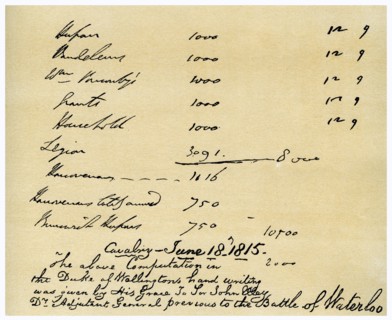 Vivian 1000 12 9
Vandeleur 1000 12 9
Wm Ponsonby's 1000 12 9
Grants 1000 12 9
Household 1000 12 9
Legion 3091. 8000
Hanoverians 1616
Hanoverians 750
Brunswick Hussars 750 10500
Cavalry - June 18, 1815.
The above Computation in 2000
the Duke of Wellington's hand writing
was given by His Grace To Sir John Elley
Dy. Adjutant General previous to the Battle of Waterloo